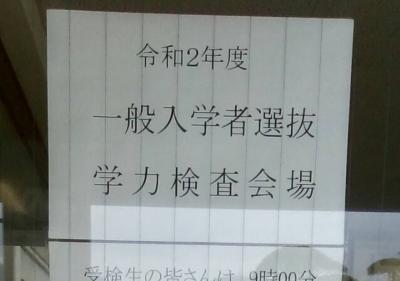 令和2年度
一般入学者選抜
学力検査会場
受検生の皆さんは、9時00分